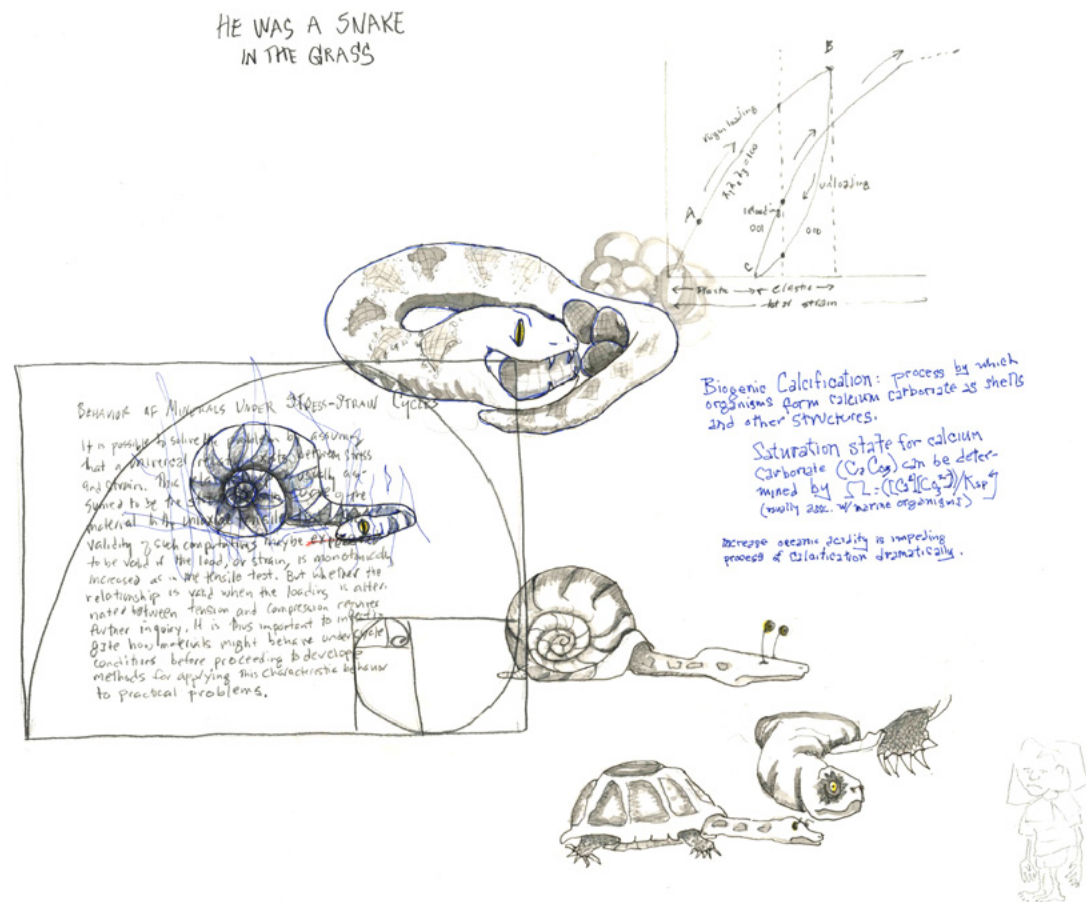 HE WAS A SNAKE
IN THE GRASS
B
loading
A
unloading
reloading
001
010
C
Plastic
elastic
total strain
Biogenic Calcification: process by which
organisms form calcium carbonate as shells
and other structures.
Saturation state for calcium
carbonate (CaCO3) can be deter-
mined by Ω = ([Ca²⁺][CO3²⁻])/Ksp
(usually assc. w/marine organisms)
Increase oceanic acidity is impeding
process of Calcification dramatically.
BEHAVIOR OF MINERALS UNDER STRESS-STRAIN CYCLES
It is possible to solve the problem by assuming
that a universal relation exists between stress
and strain. This usually as-
sumed to be the of the
material in the uniaxial tensile
validity of such computations may be
to be valid if the load, or strain, is monotonically
increased as in the tensile test. But whether the
relationship is valid when the loading is alter-
nated between tension and compression requires
further inquiry. It is thus important to investi-
gate how materials might behave under cycle
conditions before proceeding to develop
methods for applying this characteristic behavior
to practical problems.